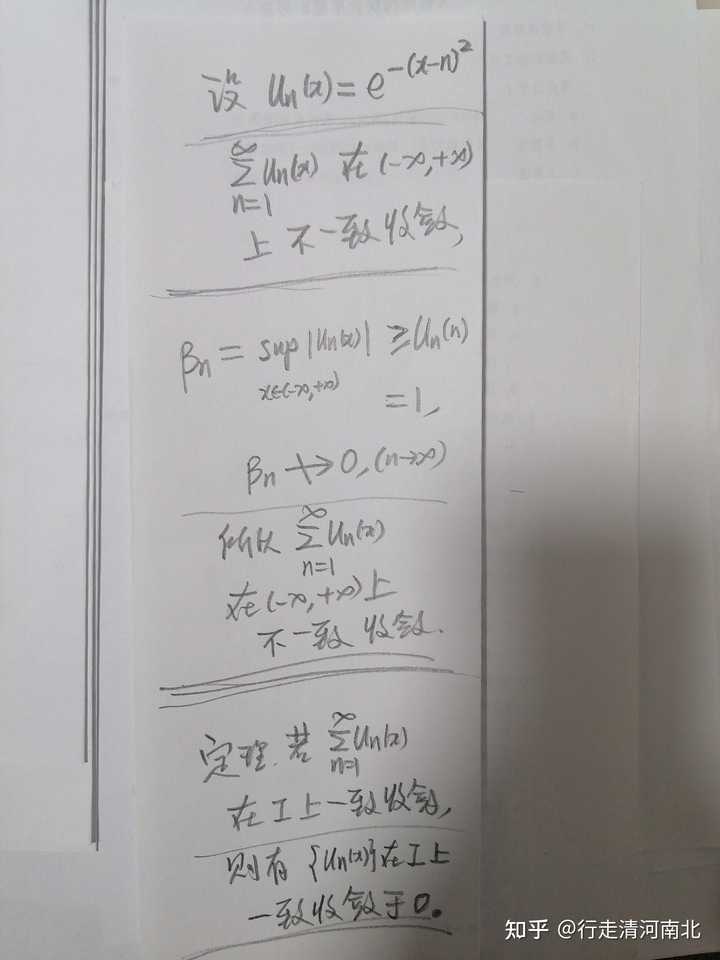 设 Un(x) = e^{-(x-n)^2}
∑_{n=1}^{∞} Un(x) 在 (-∞,+∞)
上不一致收敛,
βn = sup_{x∈(-∞,+∞)} |Un(x)| ≥ Un(n)
= 1,
βn ↛ 0, (n→∞)
所以 ∑_{n=1}^{∞} Un(x)
在(-∞,+∞)上
不一致收敛.
定理. 若 ∑_{n=1}^{∞} Un(x)
在I上一致收敛,
则有 {Un(x)}在I上
一致收敛于0。
知乎 @行走清河南北